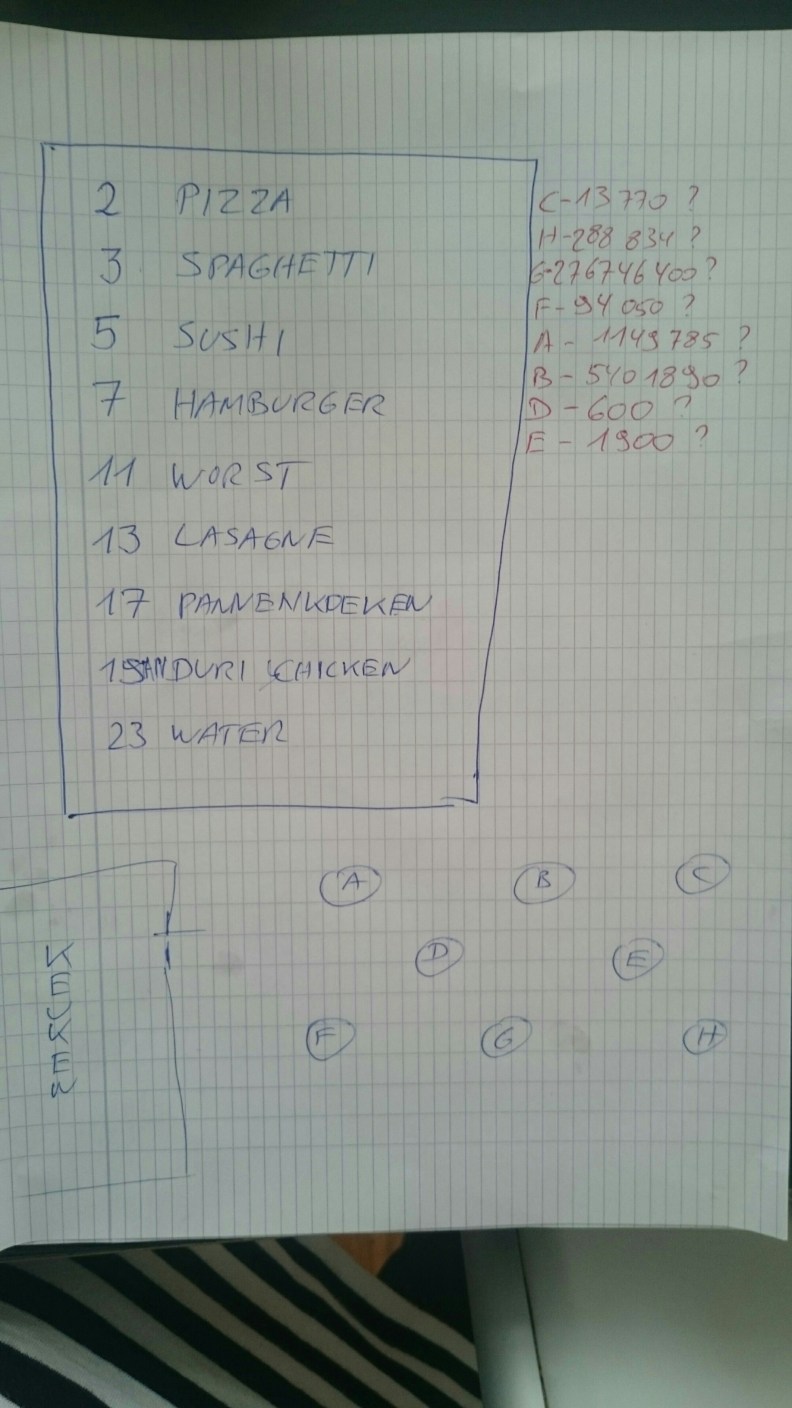 2 PIZZA
3 SPAGHETTI
5 SUSHI
7 HAMBURGER
11 WORST
13 LASAGNE
17 PANNENKOEKEN
19 TANDURI CHICKEN
23 WATER
C-13 770 ?
H-288 834 ?
G-276746400?
F-94 050 ?
A - 1149785 ?
B - 5401890 ?
D - 600 ?
E - 1900 ?
A B C
D E
F G H
KEUKEN